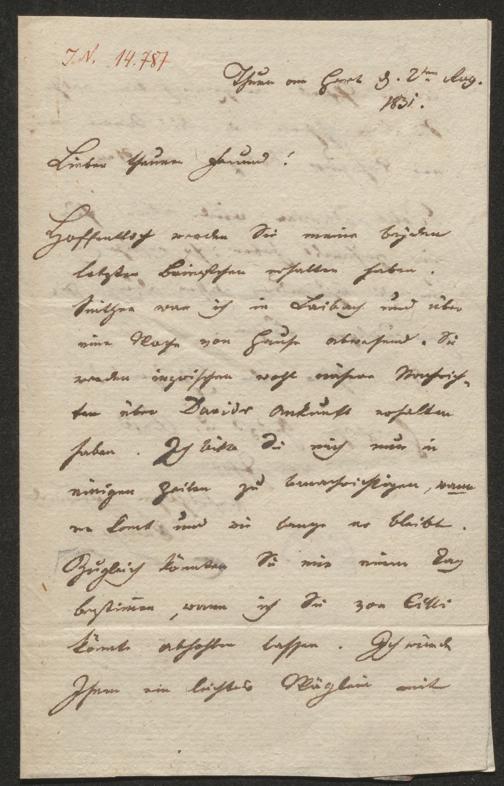 I.N. 14.787
Thurn am Hart d. 2ten Aug.
1831.
Lieber theurer Freund!
Hoffentlich werden Sie meine beyden
letzten Briefchen erhalten haben.
Seither war ich in Laibach und über
eine Woche von Hause abwesend. Sie
werden inzwischen wohl nähere Nachrich-
ten über Davids Ankunft erhalten
haben. Ich bitte Sie mich nur in
einigen Zeilen zu benachrichtigen, wann
er komt und wie lange er bleibt.
Zugleich könnten Sie mir einen Tag
bestimen, wann ich Sie von Cilli
könte abhohlen lassen. Ich würde
Ihnen ein leichtes Wäglein mit